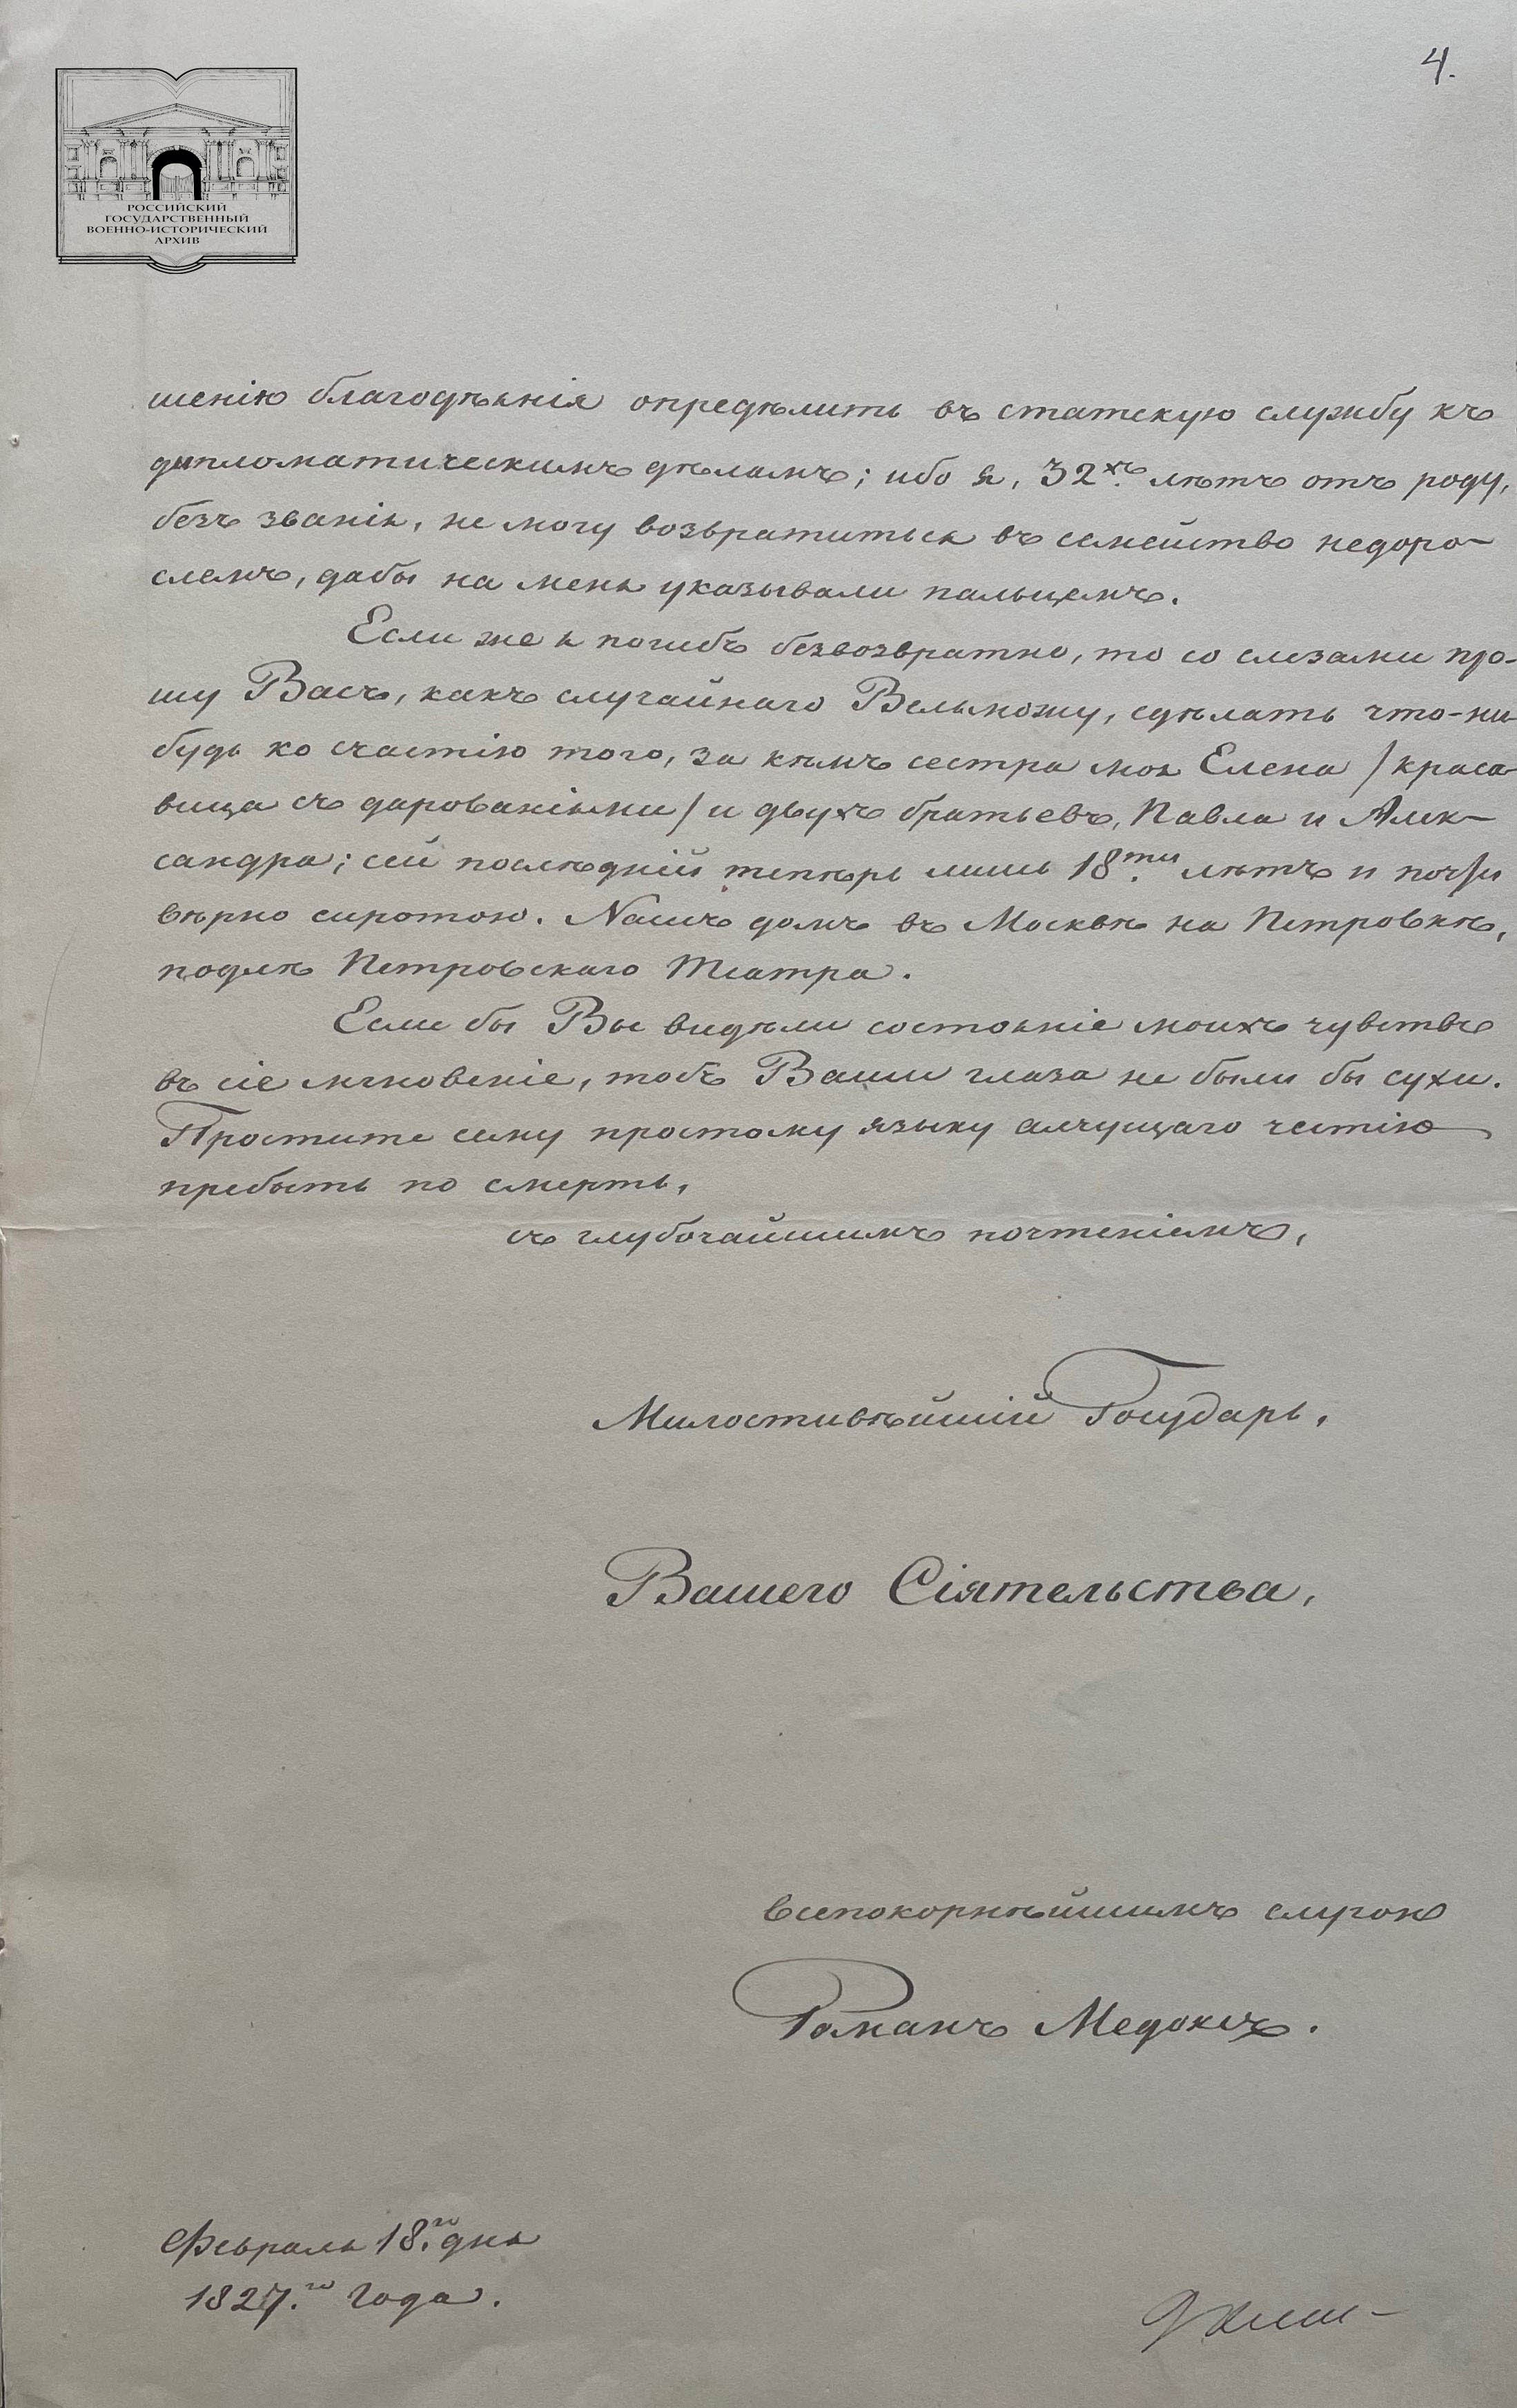 4.
РОССИЙСКИЙ
ГОСУДАРСТВЕННЫЙ
ВОЕННО-ИСТОРИЧЕСКИЙ
АРХИВ
шенію благодѣянія опредѣлить въ статскую службу къ
дипломатическимъ дѣламъ; ибо я, 32хъ. лѣтъ отъ роду,
безъ званія, не могу возвратиться въ семейство недоро-
слемъ, дабы на меня указывали пальцемъ.
Если же я погибъ безвозвратно, то со слезами про-
шу Васъ, какъ случайнаго Вельможу, сдѣлать что-ни-
будь ко счастію того, за кѣмъ сестра моя Елена /краса-
вица съ дарованіями/ и двухъ братьевъ, Павла и Алек-
сандра; сей послѣдній теперь лишь 18ти. лѣтъ и почти
вѣрно сиротою. Нашъ домъ въ Москвѣ на Петровкѣ,
подлѣ Петровскаго Театра.
Если бы Вы видѣли состояніе моихъ чувствъ
въ сіе мгновеніе, тобъ Ваши глаза не были бы сухи.
Простите сему простому языку алчущаго честію
пребыть по смерть,
съ глубочайшимъ почтеніемъ,
Милостивѣйшій Государь,
Вашего Сіятельства,
всепокорнѣйшимъ слугою
Романъ Медоксъ.
Февраля 18.го дня
1827.го года.